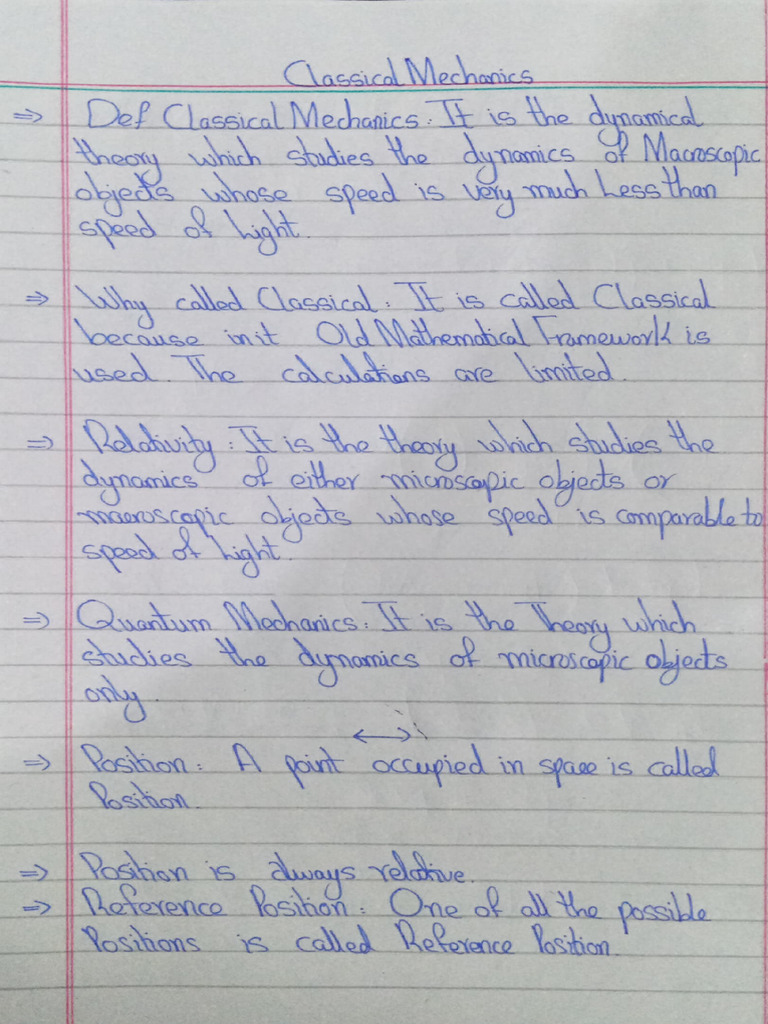 Classical Mechanics
⇒ Def Classical Mechanics: It is the dynamical
theory which studies the dynamics of Macroscopic
objects whose speed is very much Less than
speed of Light.
⇒ Why called Classical: It is called Classical
because in it Old Mathematical Framework is
used. The calculations are limited.
⇒ Relativity: It is the theory which studies the
dynamics of either microscopic objects or
macroscopic objects whose speed is comparable to
speed of Light.
⇒ Quantum Mechanics: It is the Theory which
studies the dynamics of microscopic objects
only.
⇒ Position: A point occupied in space is called
Position.
⇒ Position is always relative.
⇒ Reference Position: One of all the possible
Positions is called Reference Position.